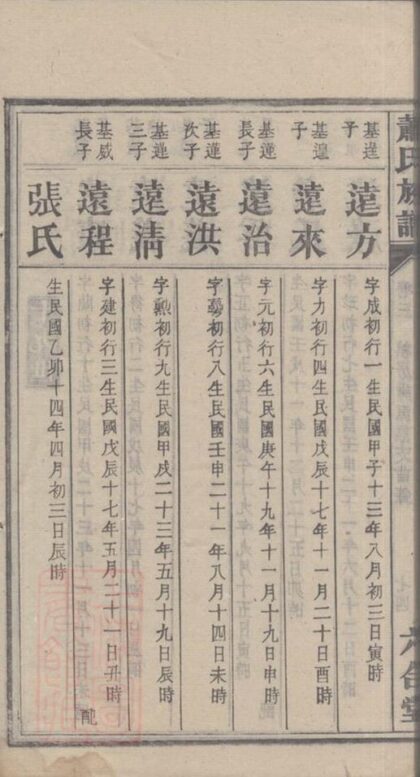 蕭氏族譜
六合堂
基達
子
遠方
字成初行一生民國甲子十三年八月初三日寅時
基遑
子
遠來
字力初行四生民國戊辰十七年十一月二十日酉時
基蓮
長子
遠治
字元初行六生民國庚午十九年十一月十九日申時
基蓮
次子
遠洪
字勷初行八生民國壬申二十一年八月十四日未時
基蓮
三子
遠淸
字勲初行九生民國甲戌二十三年五月十九日辰時
基威
長子
遠程
字建初行三生民國戊辰十七年五月二十一日丑時 配
張氏
生民國乙卯十四年四月初三日辰時